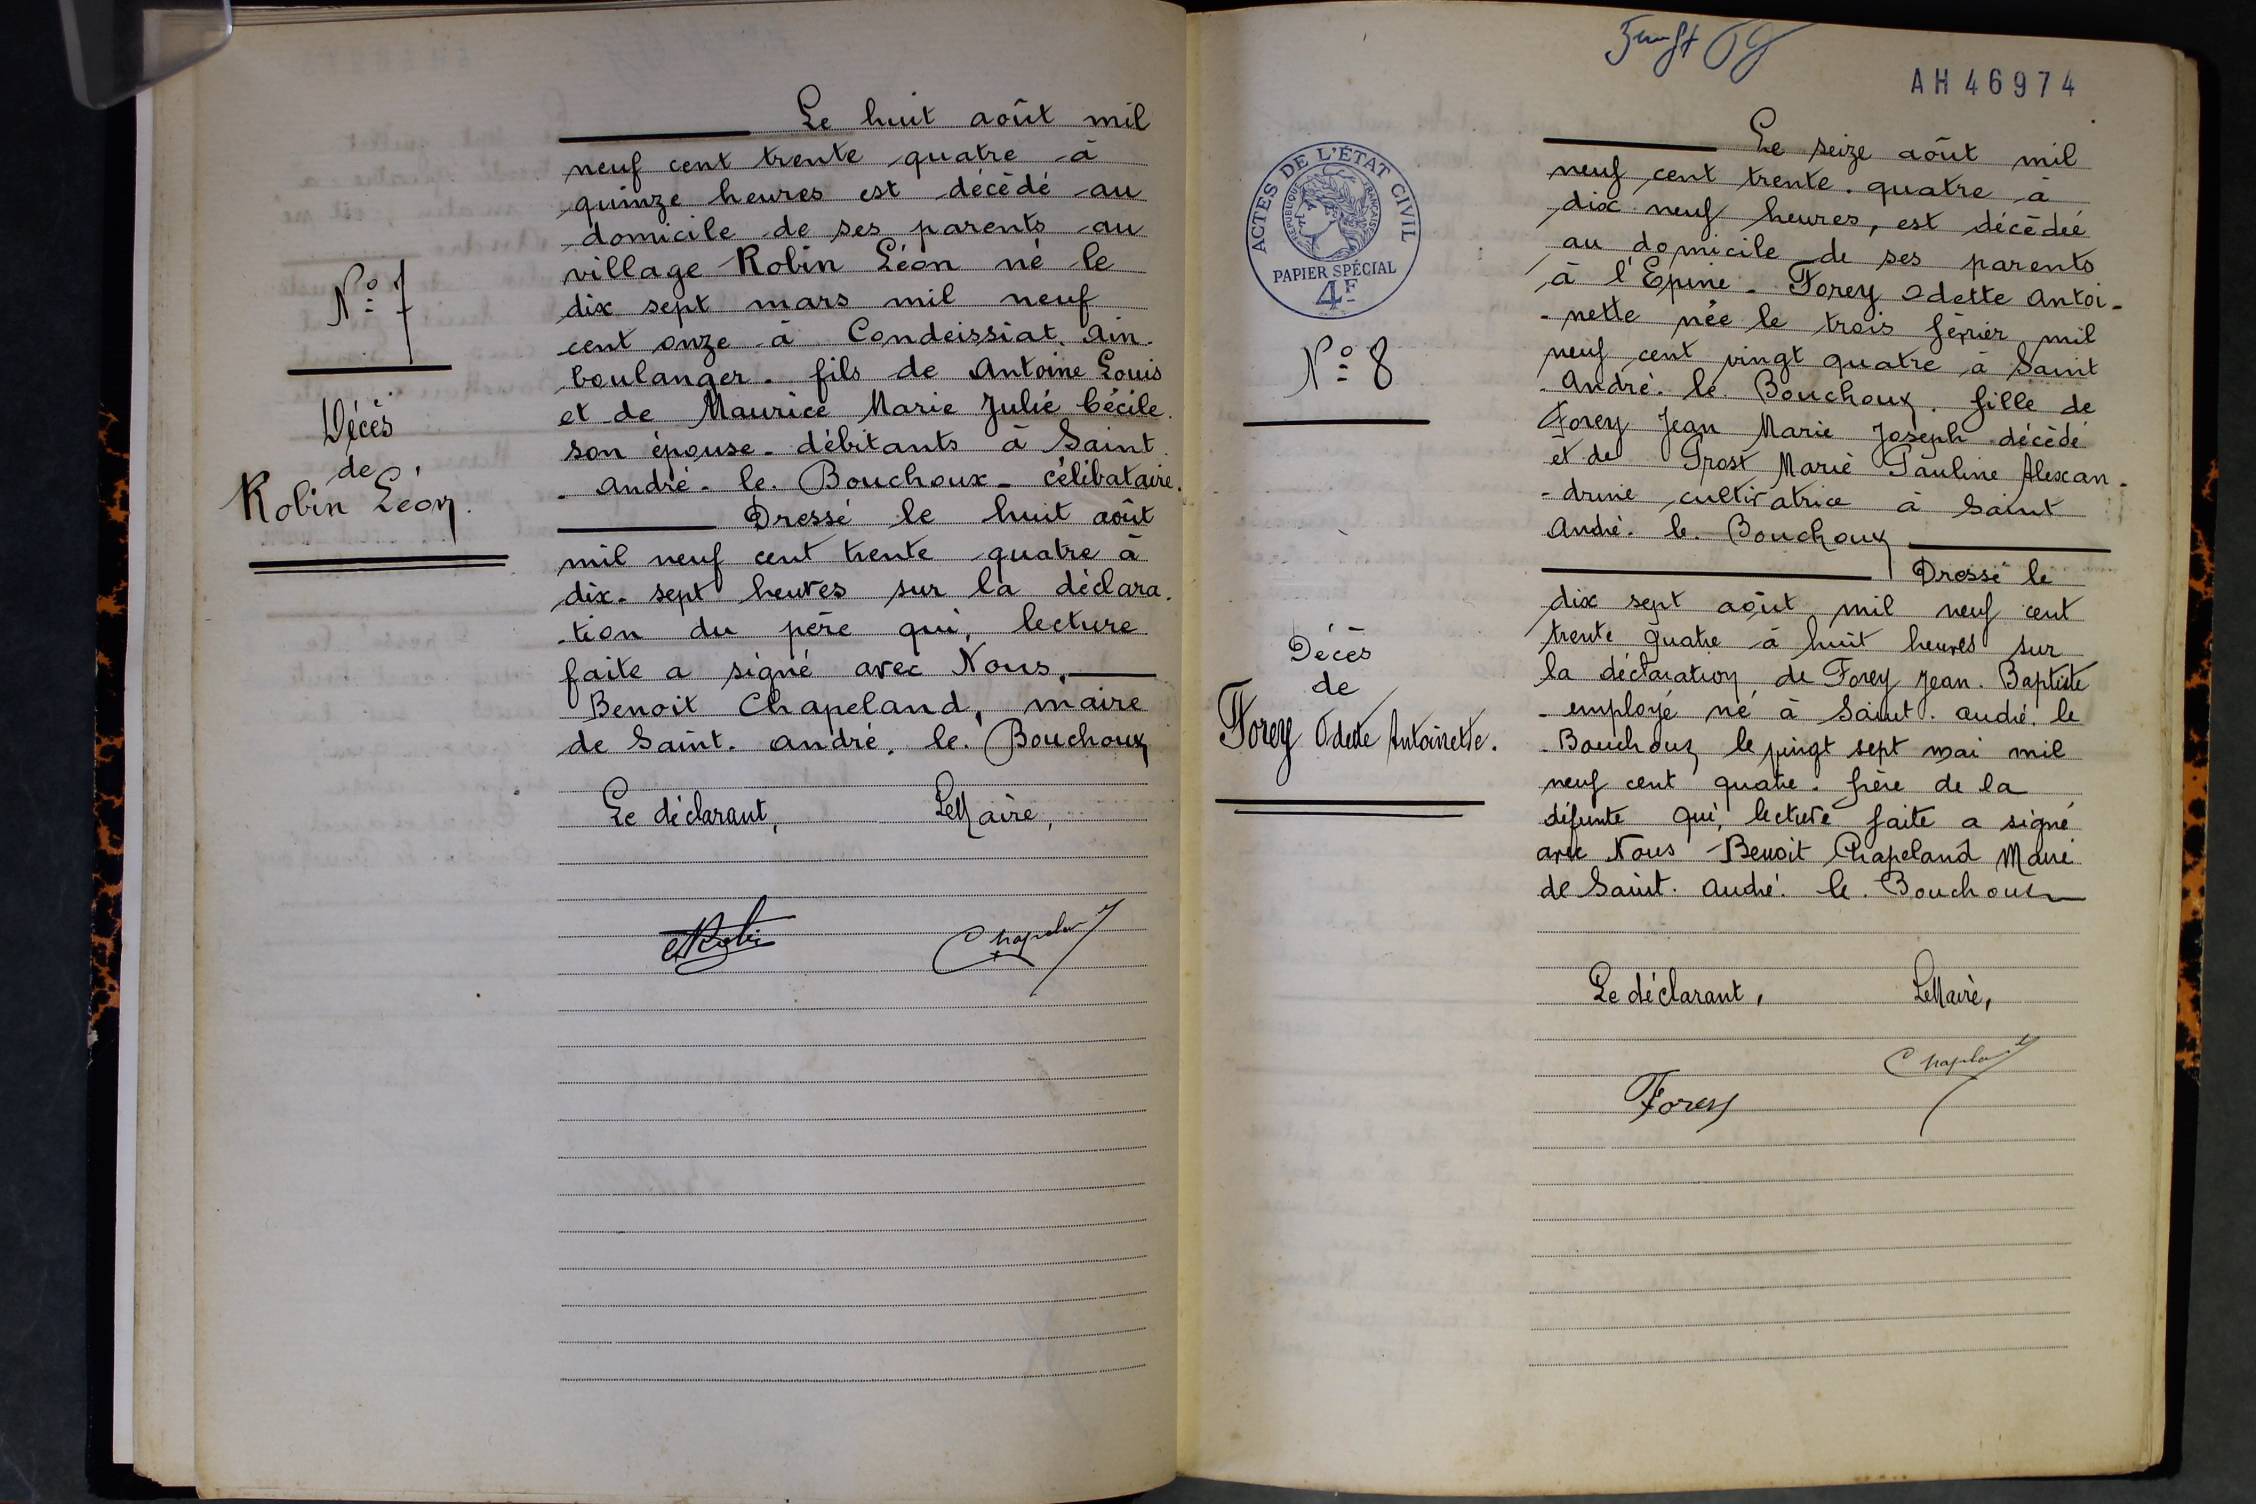 N° 7
Décès
de
Robin Léon.
Le huit août mil
neuf cent trente quatre à
quinze heures est décédé au
domicile de ses parents au
village Robin Léon né le
dix sept mars mil neuf
cent onze à Condeissiat. Ain.
boulanger. fils de Antoine Louis
et de Maurice Marie Julie Cécile.
son épouse. débitants à Saint
. André. le. Bouchoux. célibataire.
Dressé le huit août
mil neuf cent trente quatre à
dix. sept heures sur la déclara.
.tion du père qui, lecture
faite a signé avec Nous,
Benoit Chapeland, maire
de Saint. André. le. Bouchoux
Le déclarant, Le Maire,
Robin Chapeland
AH 46974
ACTES DE L'ÉTAT CIVIL
RÉPUBLIQUE FRANÇAISE
PAPIER SPÉCIAL
4F
N° 8
Décès
de
Forey Odette Antoinette.
Le seize août mil
neuf cent trente. quatre à
dix neuf heures, est décédée
au domicile de ses parents
à l'Epine. Forey Odette Antoi-
-nette née le trois février mil
neuf cent vingt quatre à Saint
. André. le. Bouchoux. fille de
Forey Jean Marie Joseph décédé
et de Prost Marie Pauline Alexan-
-drine cultivatrice à Saint
André. le. Bouchoux
Dressé le
dix sept août mil neuf cent
trente quatre à huit heures sur
la déclaration de Forey Jean. Baptiste
- employé né à Saint. André. le
. Bouchoux le vingt sept mai mil
neuf cent quatre. frère de la
défunte qui, lecture faite a signé
avec Nous Benoit Chapeland Maire
de Saint. André. le. Bouchoux
Le déclarant, Le Maire,
Chapeland
Forey